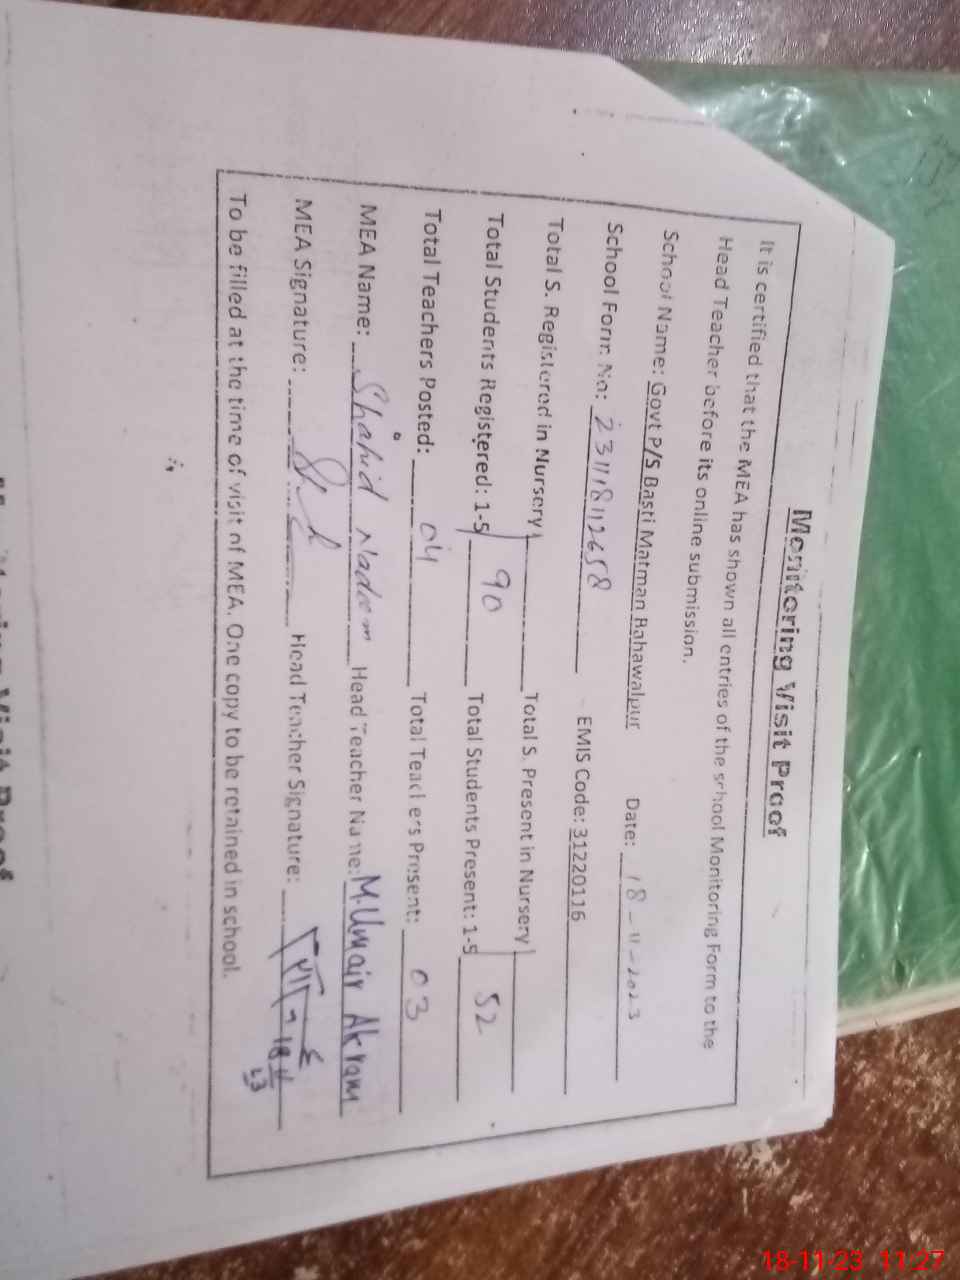 Monitoring Visit Proof
It is certified that the MEA has shown all entries of the school Monitoring Form to the
Head Teacher before its online submission.
School Name: Govt P/S Basti Matman Bahawalpur Date: 18-11-2023
School Form No: 231118112658 EMIS Code: 31220116
Total S. Registered in Nursery Total S. Present in Nursery
Total Students Registered: 1-5 90 Total Students Present: 1-5 52
Total Teachers Posted: 04 Total Teachers Present: 03
MEA Name: Shahid Nadeem Head Teacher Name: M.Umair Akram
MEA Signature: Head Teacher Signature:
To be filled at the time of visit of MEA. One copy to be retained in school.
18-11-23 11:27